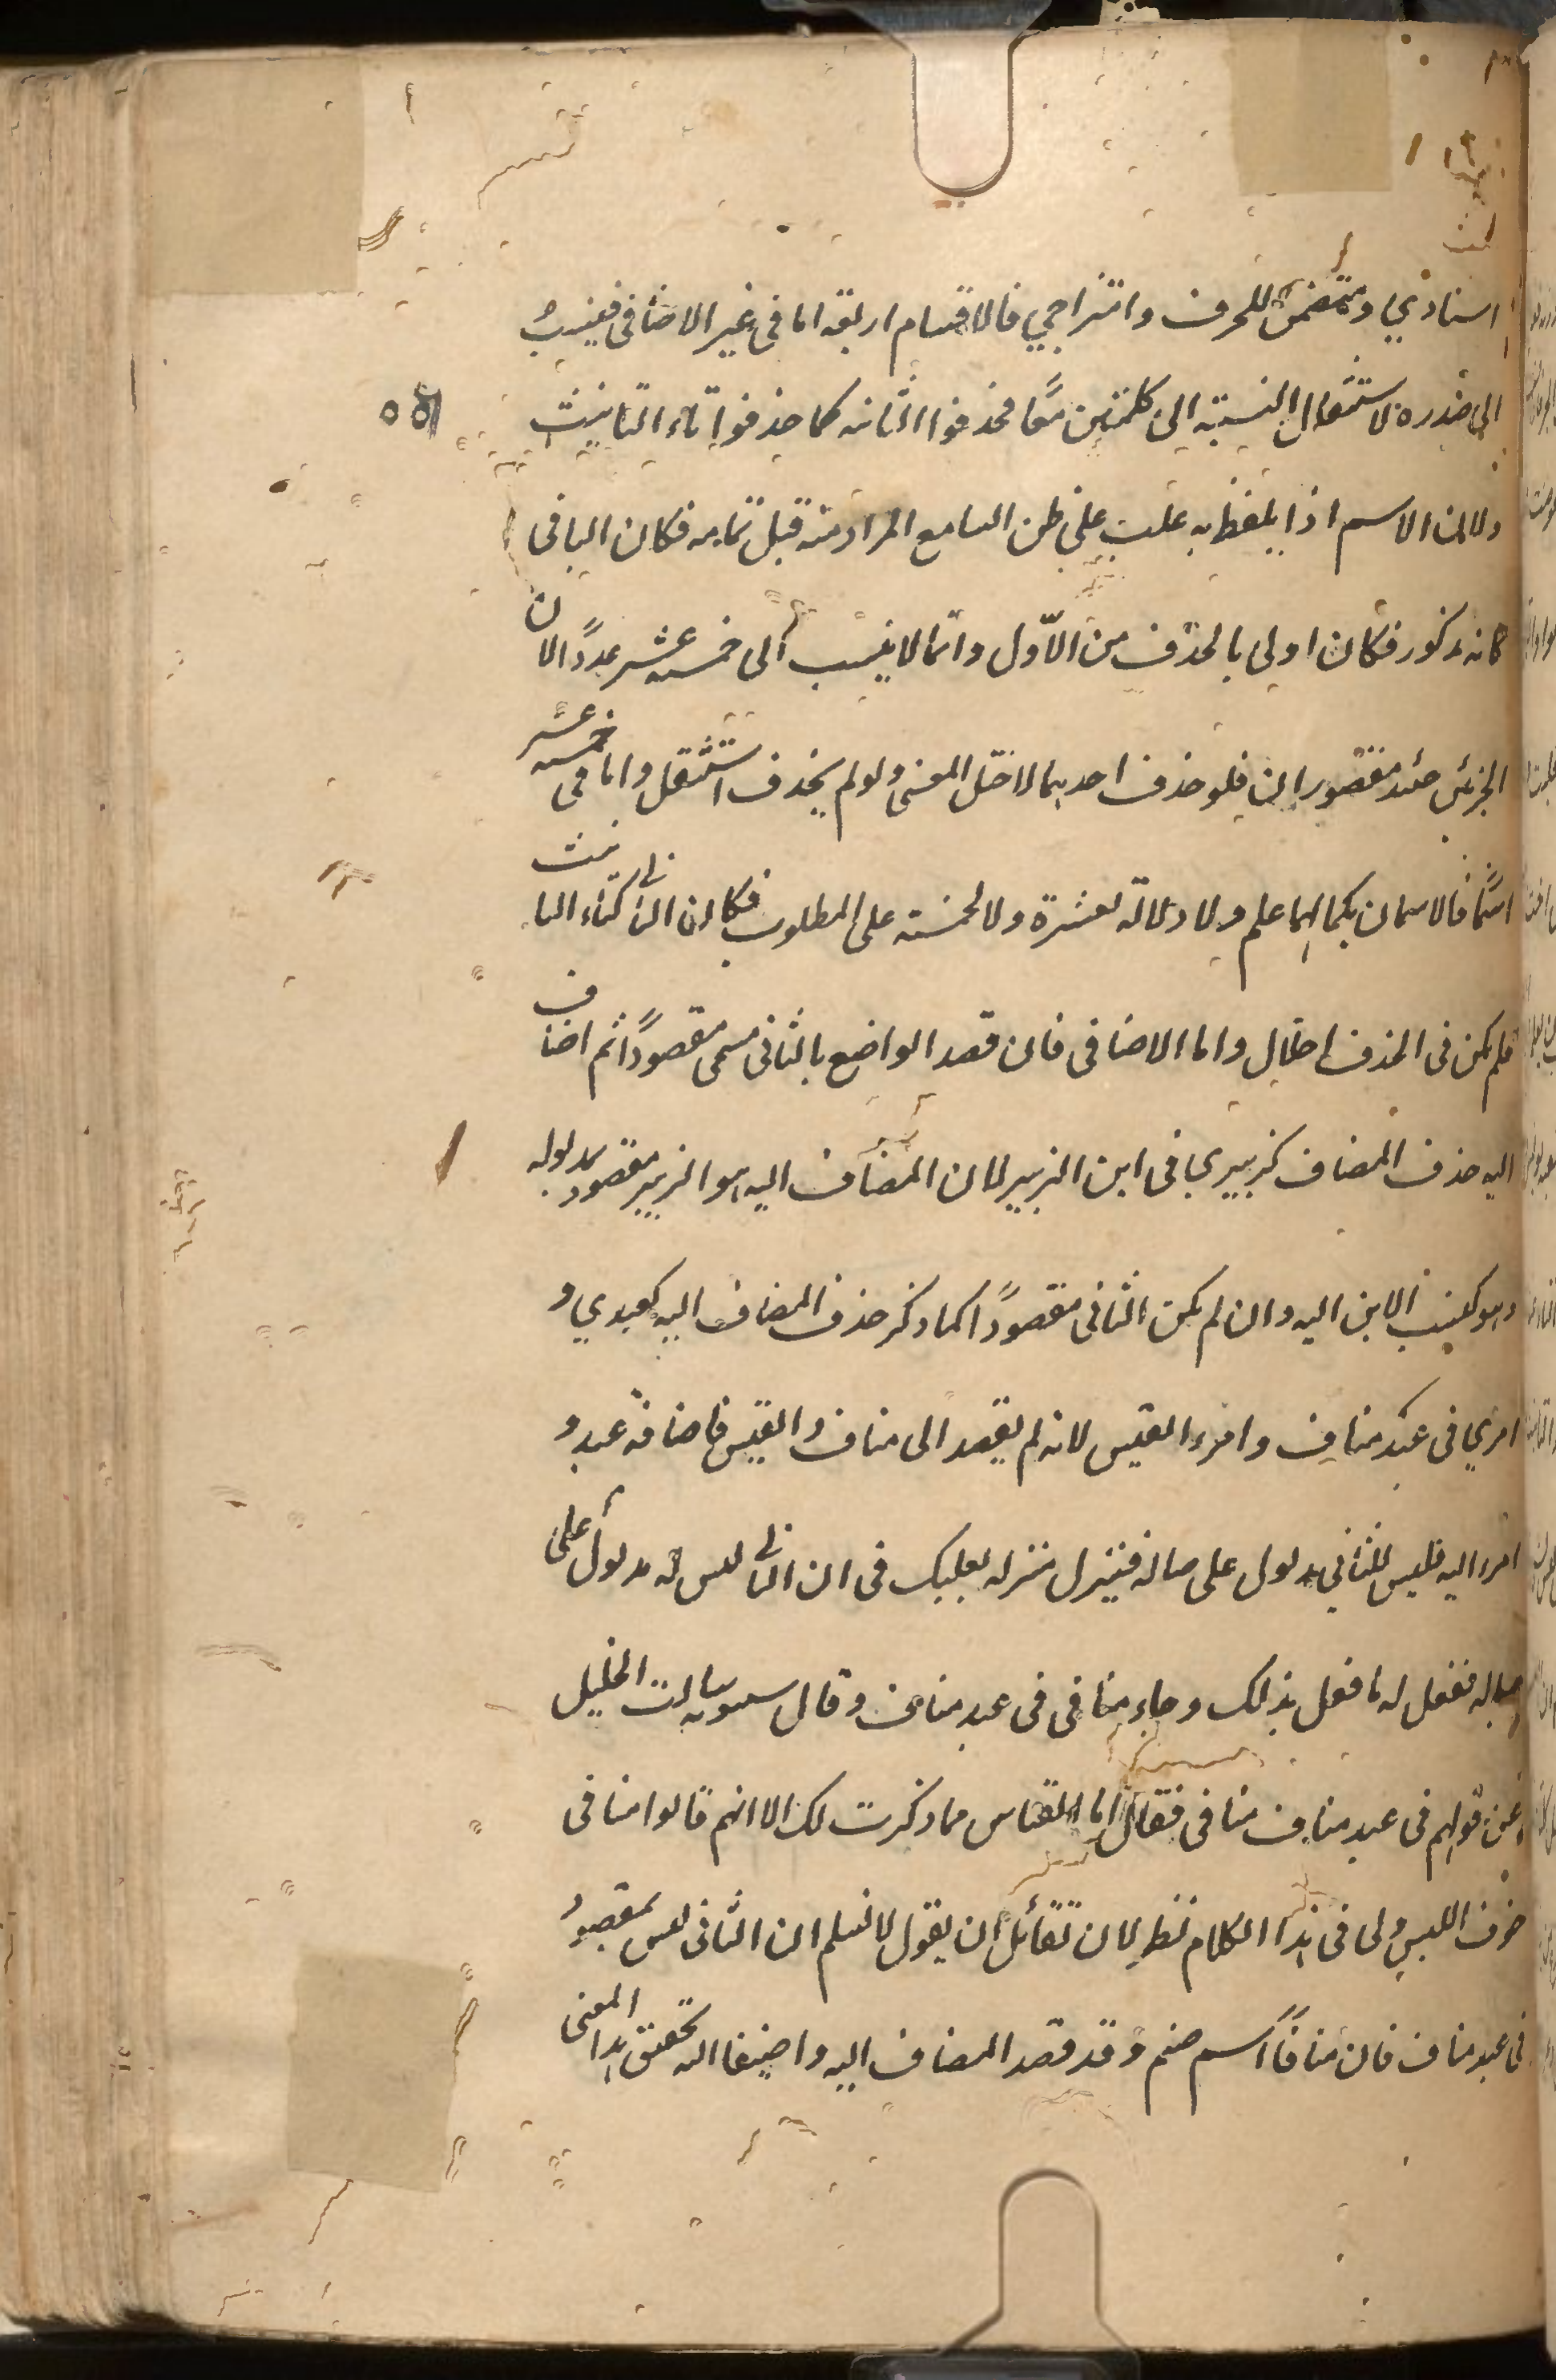 اسنادي ومتضمن للحرف وامتزاجي فالاقسام اربعة اما في غير الاضافي فينسب
الى صدره لاستثقال النسبة الى كلمتين معا فحذفوا الثانيه كما حذفوا تاء التانيث
ولان الاسم اذا يلفظ به علب على ظن السامع المراد منه قبل تمامه فكان الباقي
كانه مذكور فكان اولى بالحذف من الاوّل وانما لا ينسب الى خمسة عشر عددًا لان
الجزئين حينئذ مقصودان فلو حذف احدهما لاختل المعنى ولو لم يحذف استثقل واما في خمسة عشر
اسمًا فالاسمان بكمالهما علم ولا دلالة لعشرة ولا لخمسة على المطلوب فكان الثاني كتاء التانيث
فلم يكن في الحذف اخلال واما الاضافي فان قصد الواضع بالثاني مسمى مقصودًا ثم اضاف
اليه حذف المضاف كزبيري في ابن الزبير لان المضاف اليه هو الزبير مقصود مدلوله
وهو كنسب الابن اليه وان لم يكن الثاني مقصودًا كما ذكر حذف المضاف اليه كعبدي و
امرئي في عبد مناف وامرء القيس لانه لم يقصد الى مناف والقيس فاضافة عبد و
امرء اليه فليس للثاني مدلول على حياله فينزل منزلة بعلبك في ان الثاني ليس له مدلول على
حياله ففعل له ما فعل بذلك وجاء منافي في عبد مناف وقال سيبويه سالت الخليل
عن قولهم في عبد مناف منافي فقال اما القياس فما ذكرت لك الا انهم قالوا منافي
خوف اللبس ولى في هذا الكلام نظر لان لقائل ان يقول لا نسلم ان الثاني ليس بمقصود
في عبد مناف فان منافًا اسم صنم وقد قصد المضاف اليه واضيفا اليه تحقق هذا المعنى